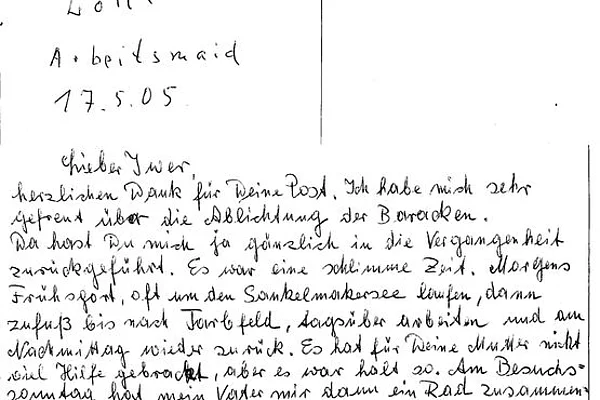 Arbeitsmaid
17.5.05
Lieber Iwer,
herzlichen Dank für Deine Post. Ich habe mich sehr
gefreut über die Ablichtung der Baracken.
Da hast Du mich ja gänzlich in die Vergangenheit
zurückgeführt. Es war eine schlimme Zeit. Morgens
Frühsport, oft um den Sankelmakersee laufen, dann
zufuß bis nach Jarbfeld, tagsüber arbeiten und am
Nachmittag wieder zurück. Es hat für Deine Mutter nicht
viel Hilfe gebracht, aber es war halt so. Am Besuchs=
sonntag hat mein Vater mir dann ein Rad zusammen-